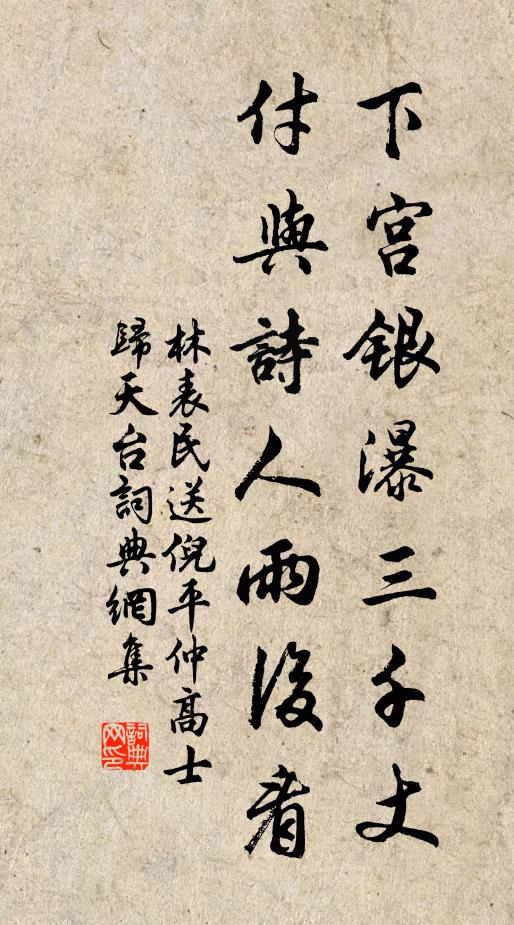 下宫銀瀑三千丈
付與詩人雨後看
林表民送倪平仲高士
歸天台詞典網集
詞典
网印